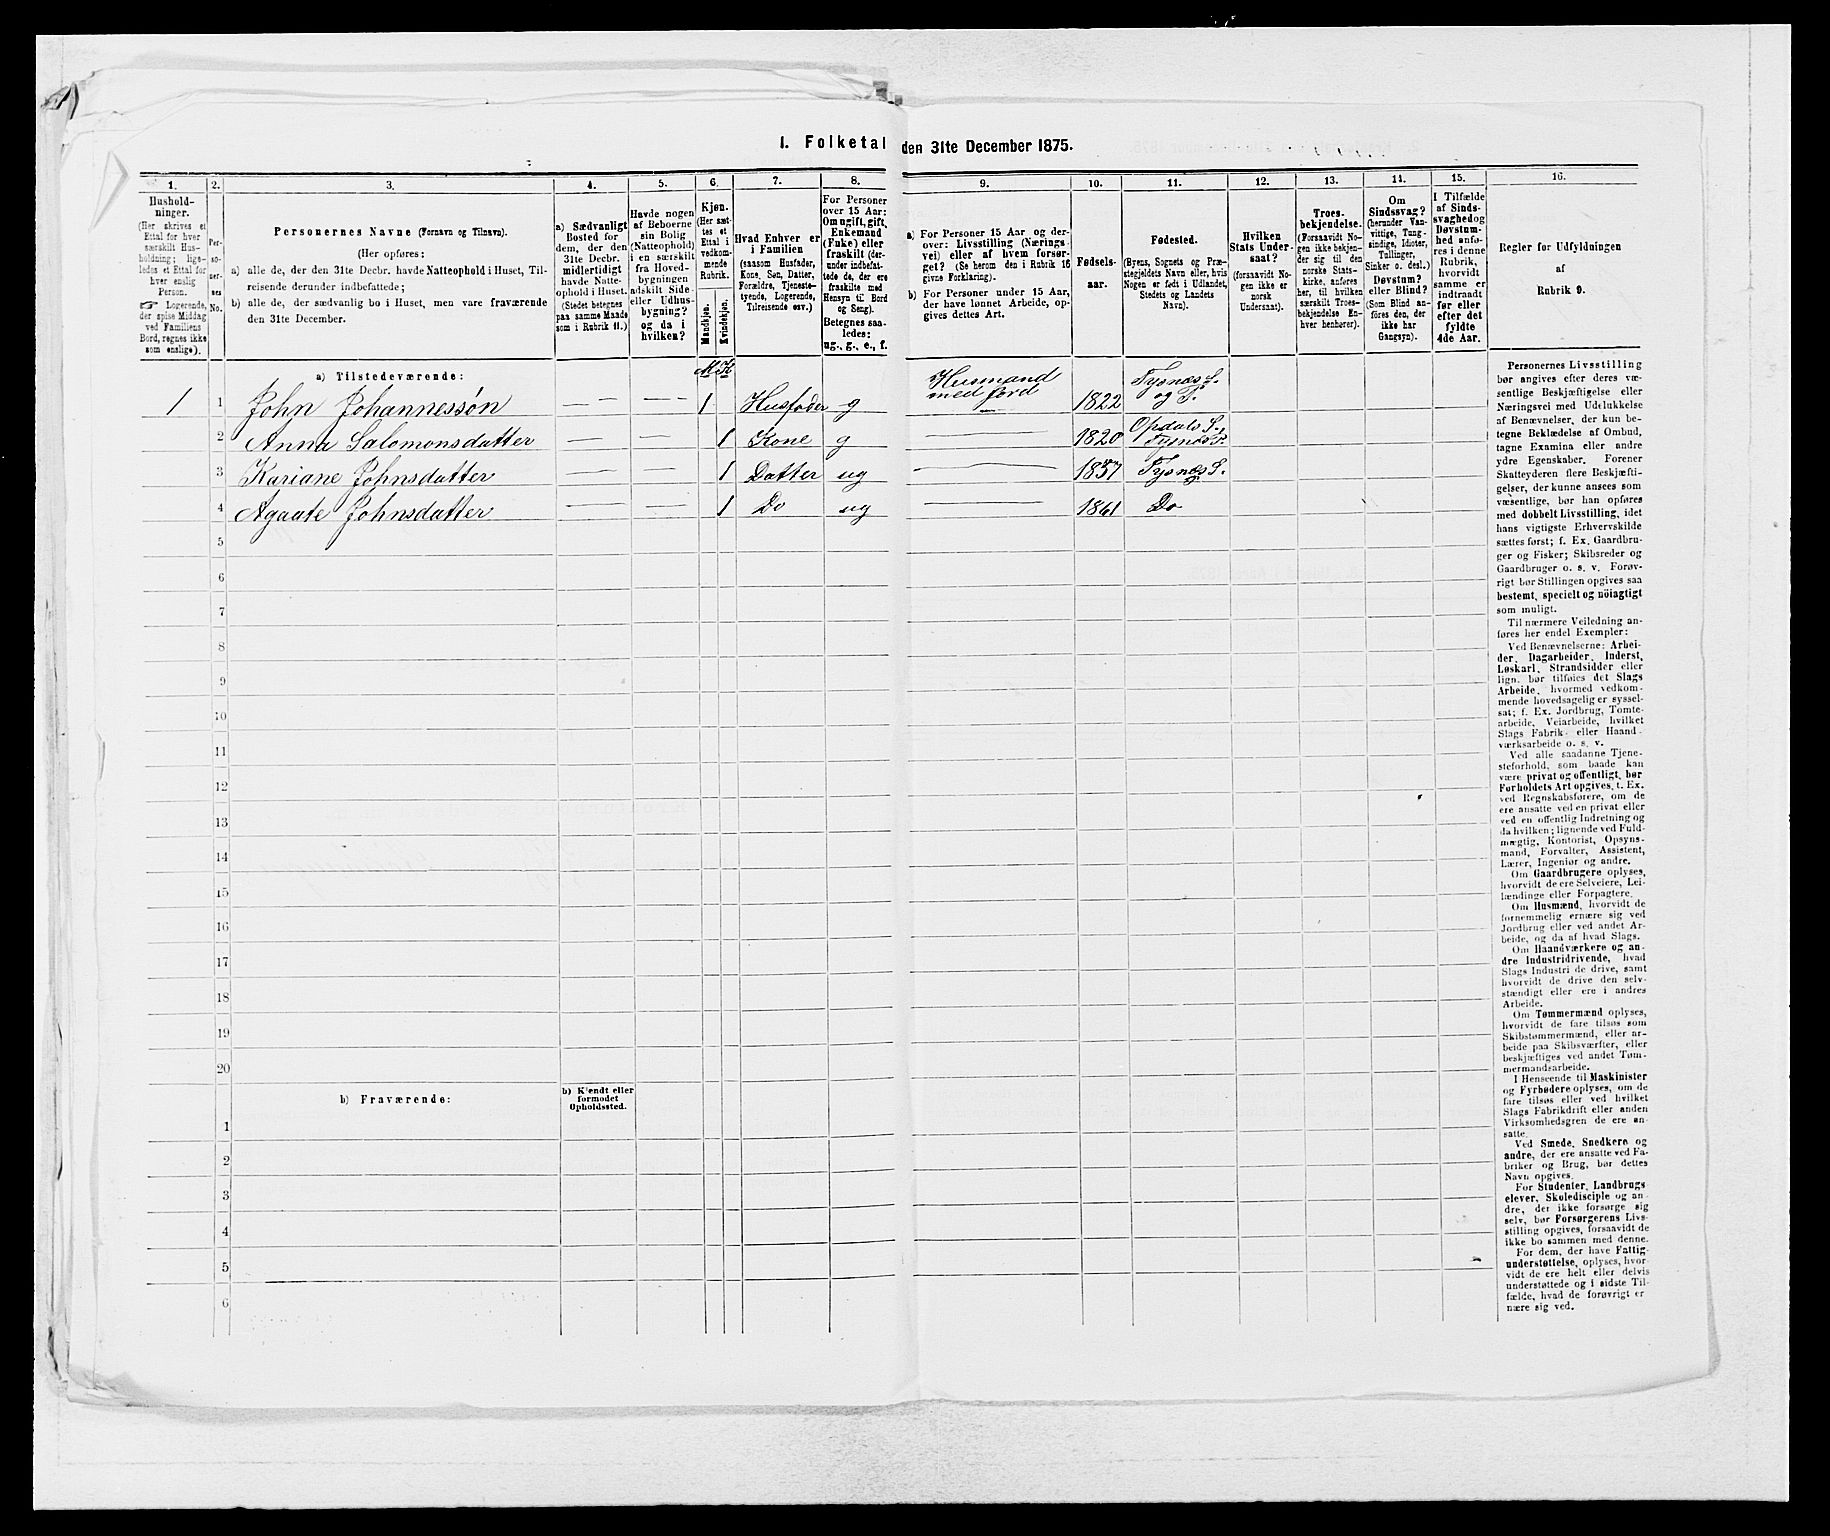 I. Folketal den 31te December 1875.
1.
2.
3.
4.
5.
6.
7.
8.
9.
10.
11.
12.
13.
14.
15.
16.
Hushold-
ninger.
(Her skrives et
Ettal for hver
særskilt Hus-
holdning; lige-
ledes et Ettal for
hver enslig
Person.
☞ Logerende,
der spise Middag
ved Familiens
Bord, regnes ikke
som enslige).
Per-
so-
ner-
nes
No.
Personernes Navne (Fornavn og Tilnavn).
(Her opføres:
a) alle de, der den 31te Decbr. havde Natteophold i Huset, Til-
reisende derunder indbefattede;
b) alle de, der sædvanlig bo i Huset, men vare fraværende
den 31te December.
a) Sædvanligt
Bosted for
dem, der den
31te Decbr.
midlertidigt
havde Natte-
ophold i Huset.
(Stedet betegnes
paa samme Maade
som i Rubrik 11.)
Havde nogen
af Beboerne
sin Bolig
(Natteophold)
i en særskilt
fra Hoved-
bygningen
adskilt Side-
eller Udhus-
bygning?
og da i
hvilken?
Kjøn.
(Her sæt-
tes et
Ettal i
vedkom-
mende
Rubrik.
Mandkjøn.
Kvindekjøn.
Hvad Enhver er
i Familien
(saasom Husfader,
Kone, Søn, Datter,
Forældre, Tjeneste-
tyende, Logerende,
Tilreisende osv.)
For Personer
over 15 Aar:
Om ugift, gift,
Enkemand
(Enke) eller
fraskilt (der-
under indbefat-
tede de, der ere
fraskilte med
Hensyn til Bord
og Seng).
Betegnes saa-
ledes:
ug., g., e., f.
a) For Personer 15 Aar og der-
over: Livsstilling (Nærings-
vei) eller af hvem forsør-
get? (Se herom den i Rubrik 16
givne Forklaring).
b) For Personer under 15 Aar,
der have lønnet Arbeide, op-
gives dettes Art.
Fødsels-
aar.
Fødested.
(Byens, Sognets og Præ-
stegjeldets Navn eller, hvis
Nogen er født i Udlandet,
Stedets og Landets
Navn).
Hvilken
Stats Under-
saat?
(forsaavidt No-
gen ikke er
norsk
Undersaat).
Troes-
bekjendelse.
(Forsaavidt No-
gen ikke bekjen-
der sig til den
norske Stats-
kirke, anføres
her, til hvilken
særskilt Troes-
bekjendelse En-
hver henhører).
Om
Sindssvag?
(herunder Van-
vittige, Tung-
sindige, Idioter,
Tullinger,
Sinker o. desl.)
Døvstum?
eller Blind?
(Som Blind an-
føres den, der
ikke har
Gangsyn).
I Tilfælde
af Sinds-
svaghed og
Døvstum-
hed anfø-
res i denne
Rubrik,
hvorvidt
samme er
indtraadt
før eller
efter det
fyldte
4de Aar.
Regler for Udfyldningen
af
Rubrik 9.
a) Tilstedeværende:
M K
1 1 John Johannessøn — — 1 Husfader g Husmand med Jord 1822 Tysnes S. og P.
2 Anna Salomonsdatter — — 1 Kone g — 1820 Opdals S., Tysnes P.
3 Kariane Johnsdatter — — 1 Datter ug — 1857 Tysnes S.
4 Agaate Johnsdatter — — 1 Do ug — 1861 Do
5
6
7
8
9
10
11
12
13
14
15
16
17
18
19
20
b) Fraværende:
b) Kjendt eller
formodet
Opholdssted.
1
2
3
4
5
6
Personernes Livsstilling
bør angives efter deres væ-
sentlige Beskjæftigelse eller
Næringsvei med Udelukkelse
af Benævnelser, der kun be-
tegne Beklædelse af Ombud,
tagne Examina eller andre
ydre Egenskaber. Forener
Skatteyderen flere Beskjæfti-
gelser, der kunne ansees som
væsentlige, bør han opføres
med dobbelt Livsstilling, idet
hans vigtigste Erhvervskilde
sættes først; f. Ex. Gaardbru-
ger og Fisker; Skibsreder og
Gaardbruger o. s. v. Forøv-
rigt bør Stillingen opgives saa
bestemt, specielt og nöiagtigt
som muligt.
Til nærmere Veiledning an-
føres her endel Exempler:
Ved Benævnelserne: Arbei-
der, Dagarbeider, Inderst,
Løskarl, Strandsidder eller
lign. bør tilføies det Slags
Arbeide, hvormed vedkom-
mende hovedsagelig er syssel-
sat; f. Ex. Jordbrug, Tomte-
arbeide, Veiarbeide, hvilket
Slags Fabrik- eller Haand-
værksarbeide o. s. v.
Ved alle saadanne Tjene-
steforhold, som baade kan
være privat og offentligt, bør
Forholdets Art opgives, t. Ex.
ved Regnskabsførere, om de
ere ansatte ved en privat eller
ved en offentlig Indretning og
da hvilken; lignende ved Fuld-
mægtig, Kontorist, Opsyns-
mand, Forvalter, Assistent,
Lærer, Ingeniør og andre.
Om Gaardbrugere oplyses,
hvorvidt de ere Selveiere, Lei-
lændinge eller Forpagtere.
Om Husmænd, hvorvidt de
fornemmelig ernære sig ved
Jordbrug eller ved andet Ar-
beide, og da af hvad Slags.
Om Haandværkere og an-
dre Industridrivende, hvad
Slags Industri de drive, samt
hvorvidt de drive den selv-
stændigt eller ere i andres
Arbeide.
Om Tømmermænd oplyses,
hvorvidt de fare tilsøs som
Skibstømmermænd, eller ar-
beide paa Skibsværfter, eller
beskjæftiges ved andet Tøm-
mermandsarbeide.
I Henseende til Maskinister
og Fyrbødere oplyses, om de
fare tilsøs eller ved hvilket
Slags Fabrikdrift eller anden
Virksomhedsgren de ere an-
satte.
Ved Smede, Snedkere og
andre, der ere ansatte ved Fa-
briker og Brug, bør dettes
Navn opgives.
For Studenter, Landbrugs-
elever, Skoledisciple og an-
dre, der ikke forsørge sig
selv, bør Forsørgerens Livs-
stilling opgives, forsaavidt de
ikke bo sammen med denne.
For dem, der have Fattig-
understøttelse, oplyses, hvor-
vidt de ere helt eller delvis
understøttede og i sidste Til-
fælde, hvad de forøvrigt er
nære sig ved.